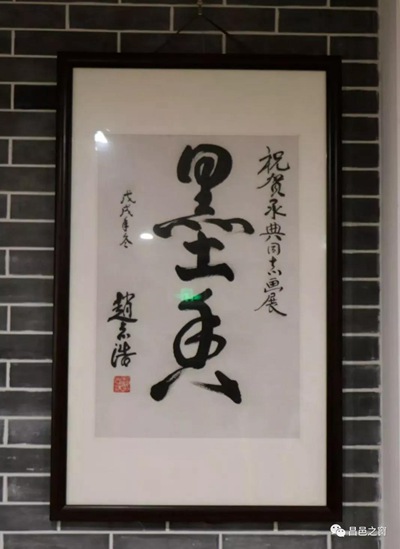 祝贺承典同志画展
墨香
戊戌年冬
趙志浩
昌邑之窗